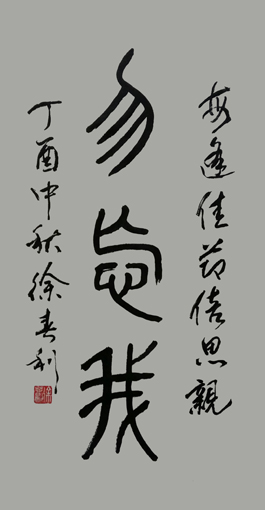 每逢佳节倍思親
勿忘我
丁酉中秋徐春利